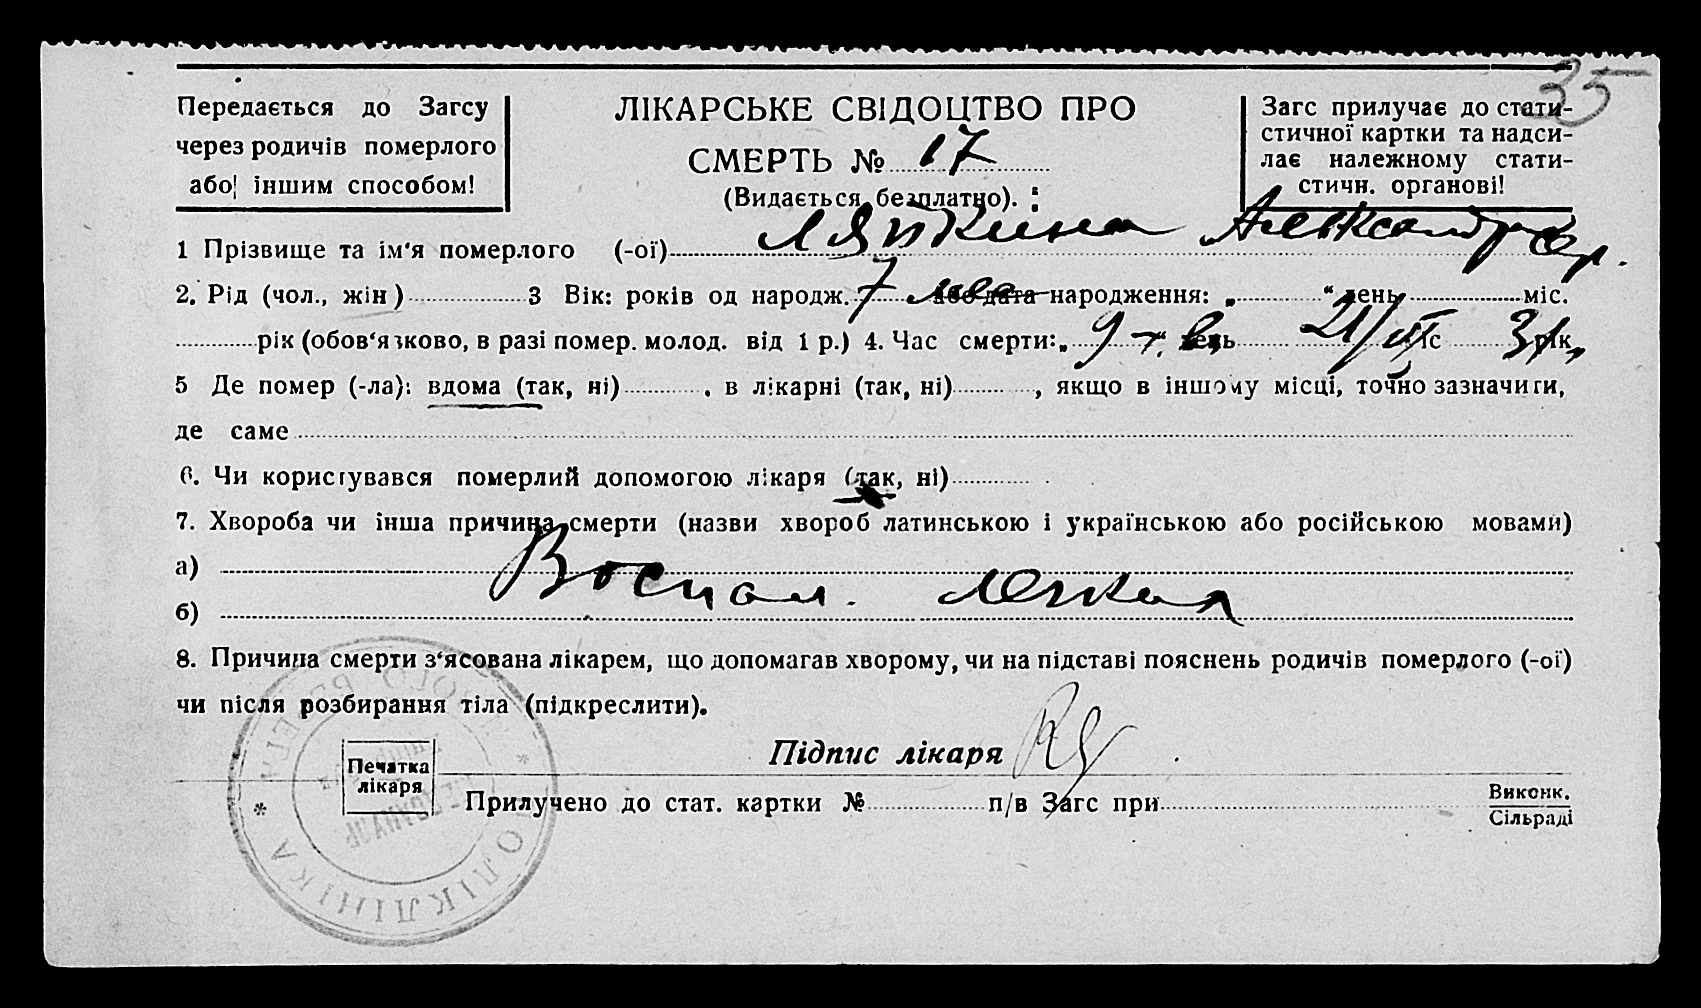 35
Передається до Загсу
через родичів померлого
або іншим способом!
ЛІКАРСЬКЕ СВІДОЦТВО ПРО
СМЕРТЬ № 17
(Видається безплатно).
Загс прилучає до стати-
стичної картки та надси-
лає належному стати-
стичн. органові!
1 Прізвище та ім'я померлого (-ої) Ляпкина Александра
2. Рід (чол., жін) 3 Вік: років од народж. 7 мес або дата народження: „ “ день міс.
рік (обов'язково, в разі помер. молод. від 1 р.) 4. Час смерти: „ 9 день 21/ міс 3 рік
5 Де помер (-ла): вдома (так, ні) , в лікарні (так, ні) , якщо в іншому місці, точно зазначити,
де саме
6. Чи користувався померлий допомогою лікаря (так, ні)
7. Хвороба чи інша причина смерти (назви хвороб латинською і українською або російською мовами)
а)
Воспал. легких
б)
8. Причина смерти з'ясована лікарем, що допомагав хворому, чи на підставі пояснень родичів померлого (-ої)
чи після розбирання тіла (підкреслити).
Підпис лікаря
Печатка
лікаря
Прилучено до стат. картки № п/в Загс при Виконк.
Сільраді
ПОЛІКЛІНІКА